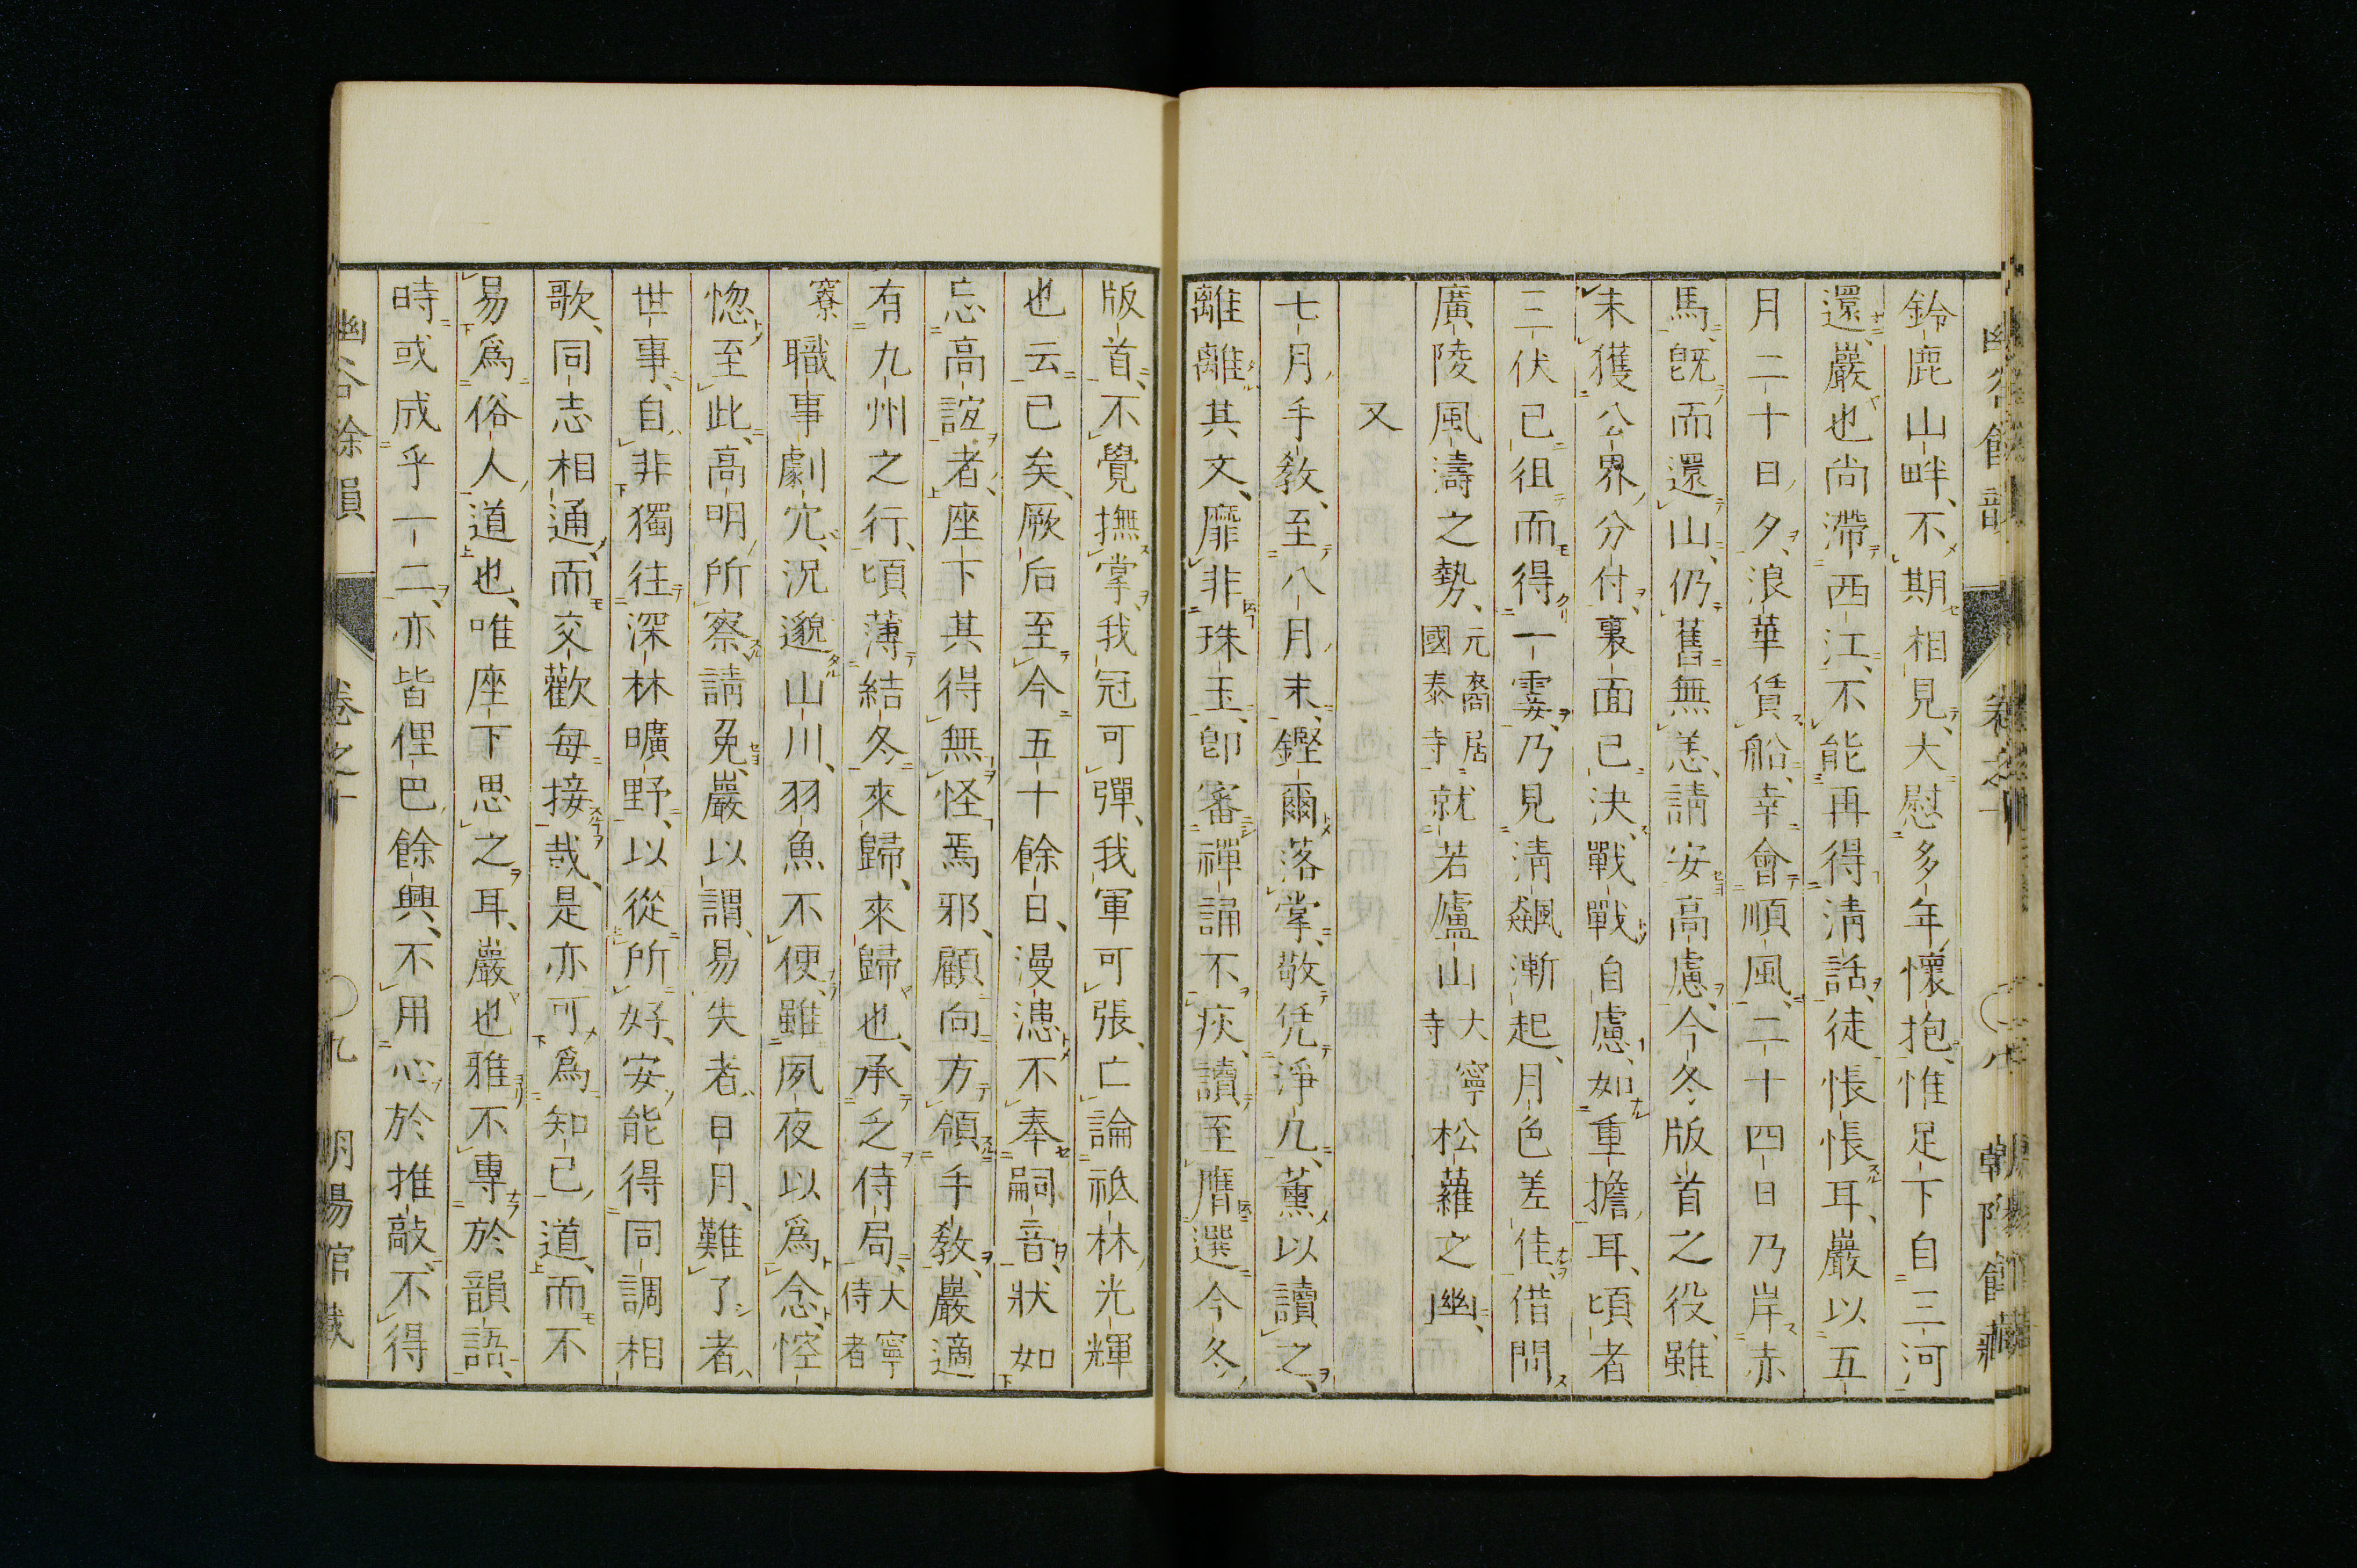 鈴鹿山畔、不期相見、大慰多年懷抱、惟足下自三河
還、嚴也尚滯西江、不能再得淸話、徒悵悵耳、嚴以五
月二十日夕、浪華賃船、幸會順風、二十四日乃岸赤
馬、旣而還山、仍舊無恙、請安高慮、今冬版首之役、雖
未獲公界分付、裏面已決、戰戰自慮、如重擔耳、頃者
三伏已徂、而得一霎、乃見淸飆漸起、月色差佳、借問
廣陵風濤之勢、元裔居國泰寺就若廬山大寧寺松蘿之幽、
又
七月手敎、至八月末、鏗爾落掌、敬凭淨几、薰以讀之、
離離其文、靡非珠玉、卽審禪誦不疚、讀至膺選今冬、
版首、不覺撫掌、我冠可彈、我軍可張、亡論祇林光輝
也云已矣、厥后至今五十餘日、漫漶不奉嗣音、狀如
忘高誼者、座下其得無怪焉邪、顧向方領手敎、嚴適
有九州之行、頃薄結冬來歸、來歸也、承乏侍局、大寧侍者
寮職事劇宂、況邈山川、羽魚不便、雖夙夜以爲念、悾
惚至此、高明所察請免、嚴以謂、易失者、日月、難了者、
世事、自非獨往深林曠野、以從所好、安能得同調相
歌、同志相通、而交歡每接哉、是亦可爲知己道、而不
易爲俗人道也、唯座下思之耳、嚴也雅不專於韻語、
時或成乎一二、亦皆俚巴餘興、不用心於推敲、不得
幽谷餘韻 卷之十 ○九 朝陽館藏